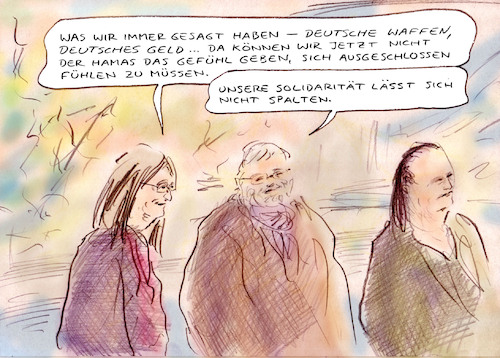 WAS WIR IMMER GESAGT HABEN – DEUTSCHE WAFFEN,
DEUTSCHES GELD ... DA KÖNNEN WIR JETZT NICHT
DER HAMAS DAS GEFÜHL GEBEN, SICH AUSGESCHLOSSEN
FÜHLEN ZU MÜSSEN.
UNSERE SOLIDARITÄT LÄSST SICH
NICHT SPALTEN.